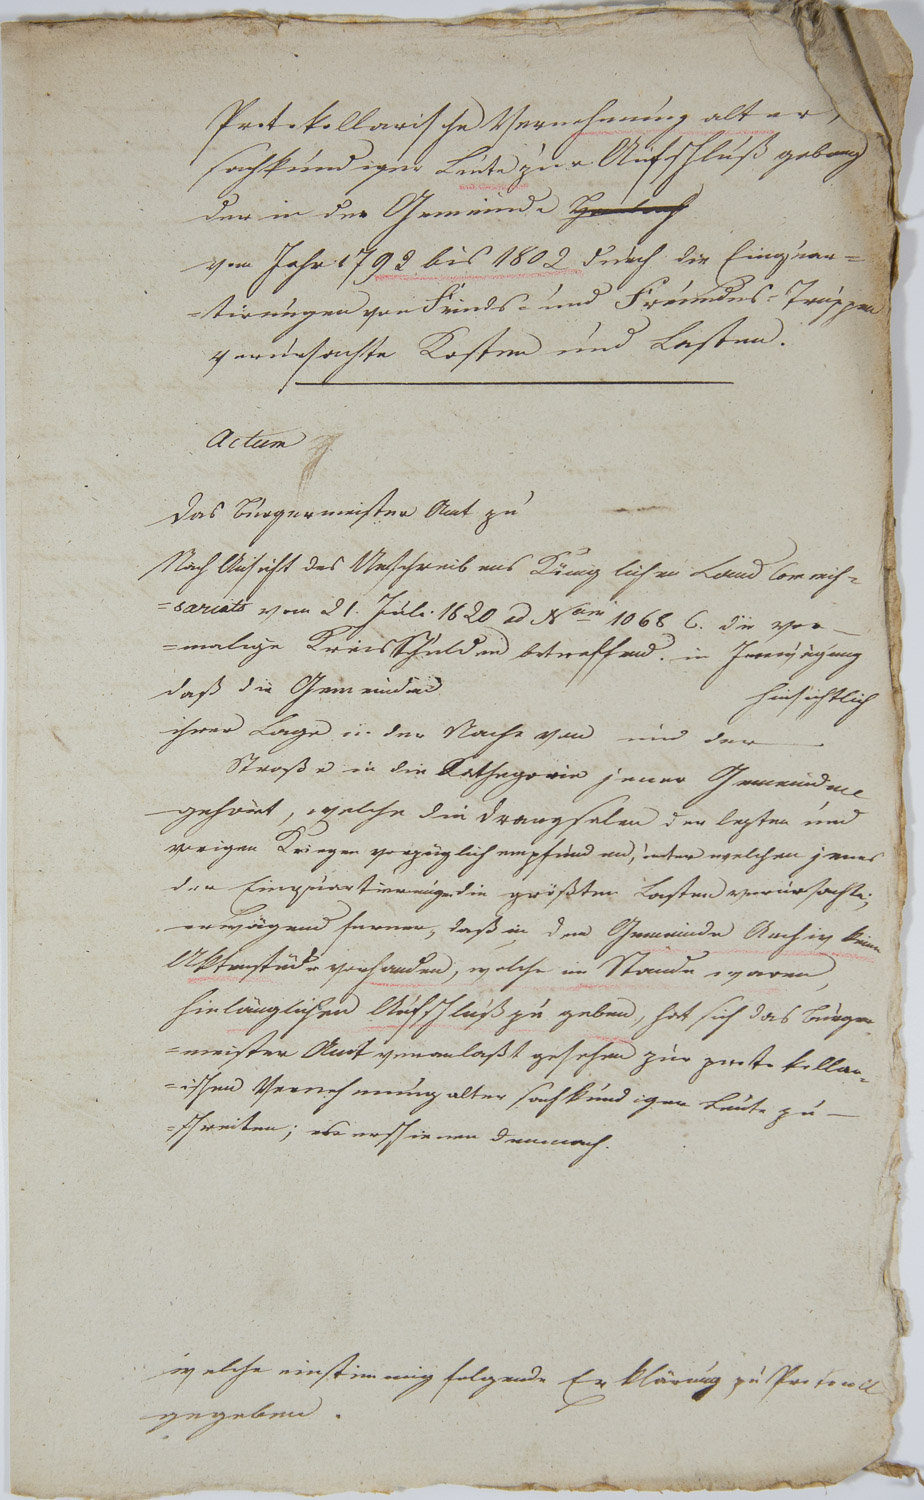 Protokollarische Vernehmung alter,
sachkundiger Leute zur Aufschluß gebung
der in der Gemeinde
vom Jahr 1792 bis 1802 durch die Einquar=
=tirungen von Feinds- und Freundes-Truppen
verursachte Kosten und Lasten.
Actum
Das Bürgermeister Amt zu
Nach Ansicht des Umschreibens Königlichen Land Commis=
=sariats vom 21. Juli 1820 ad Num 1068 C. die vor=
=malige Kreisschulden betreffend. in Erwägung
daß die Gemeinde hinsichtlich
ihrer Lage in der Nähe von und der
Straße in die Cathegorie jener Gemeinden
gehört, welche die Drangsalen der lezten und
vorigen Kriegen vorzüglich empfunden, unter welchen jenes
der Einquartierung die größten Lasten verursachte;
erwägend ferner, daß in dem Gemeinde Archiv keine
Aktenstücke vorhanden, welche im Stande waren,
hinlänglichen Aufschluß zu geben, hat sich das Bürger=
=meister Amt veranlaßt gesehen zur protokollar=
=ischen Vernehmung alter sachkundiger Leute zu
=schreiten; es erschienen demnach.
welche einstimmig folgende Erklärung zu Protocoll
gegeben.